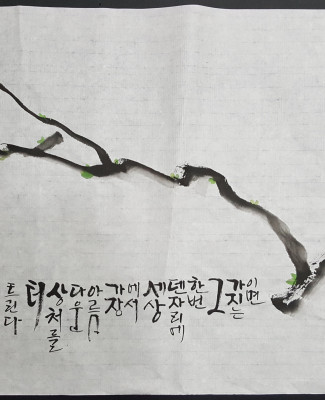 이면
가지는
그
한번
덴자리에
세상
에서
가장
아름
다운
상처를
터
트린다